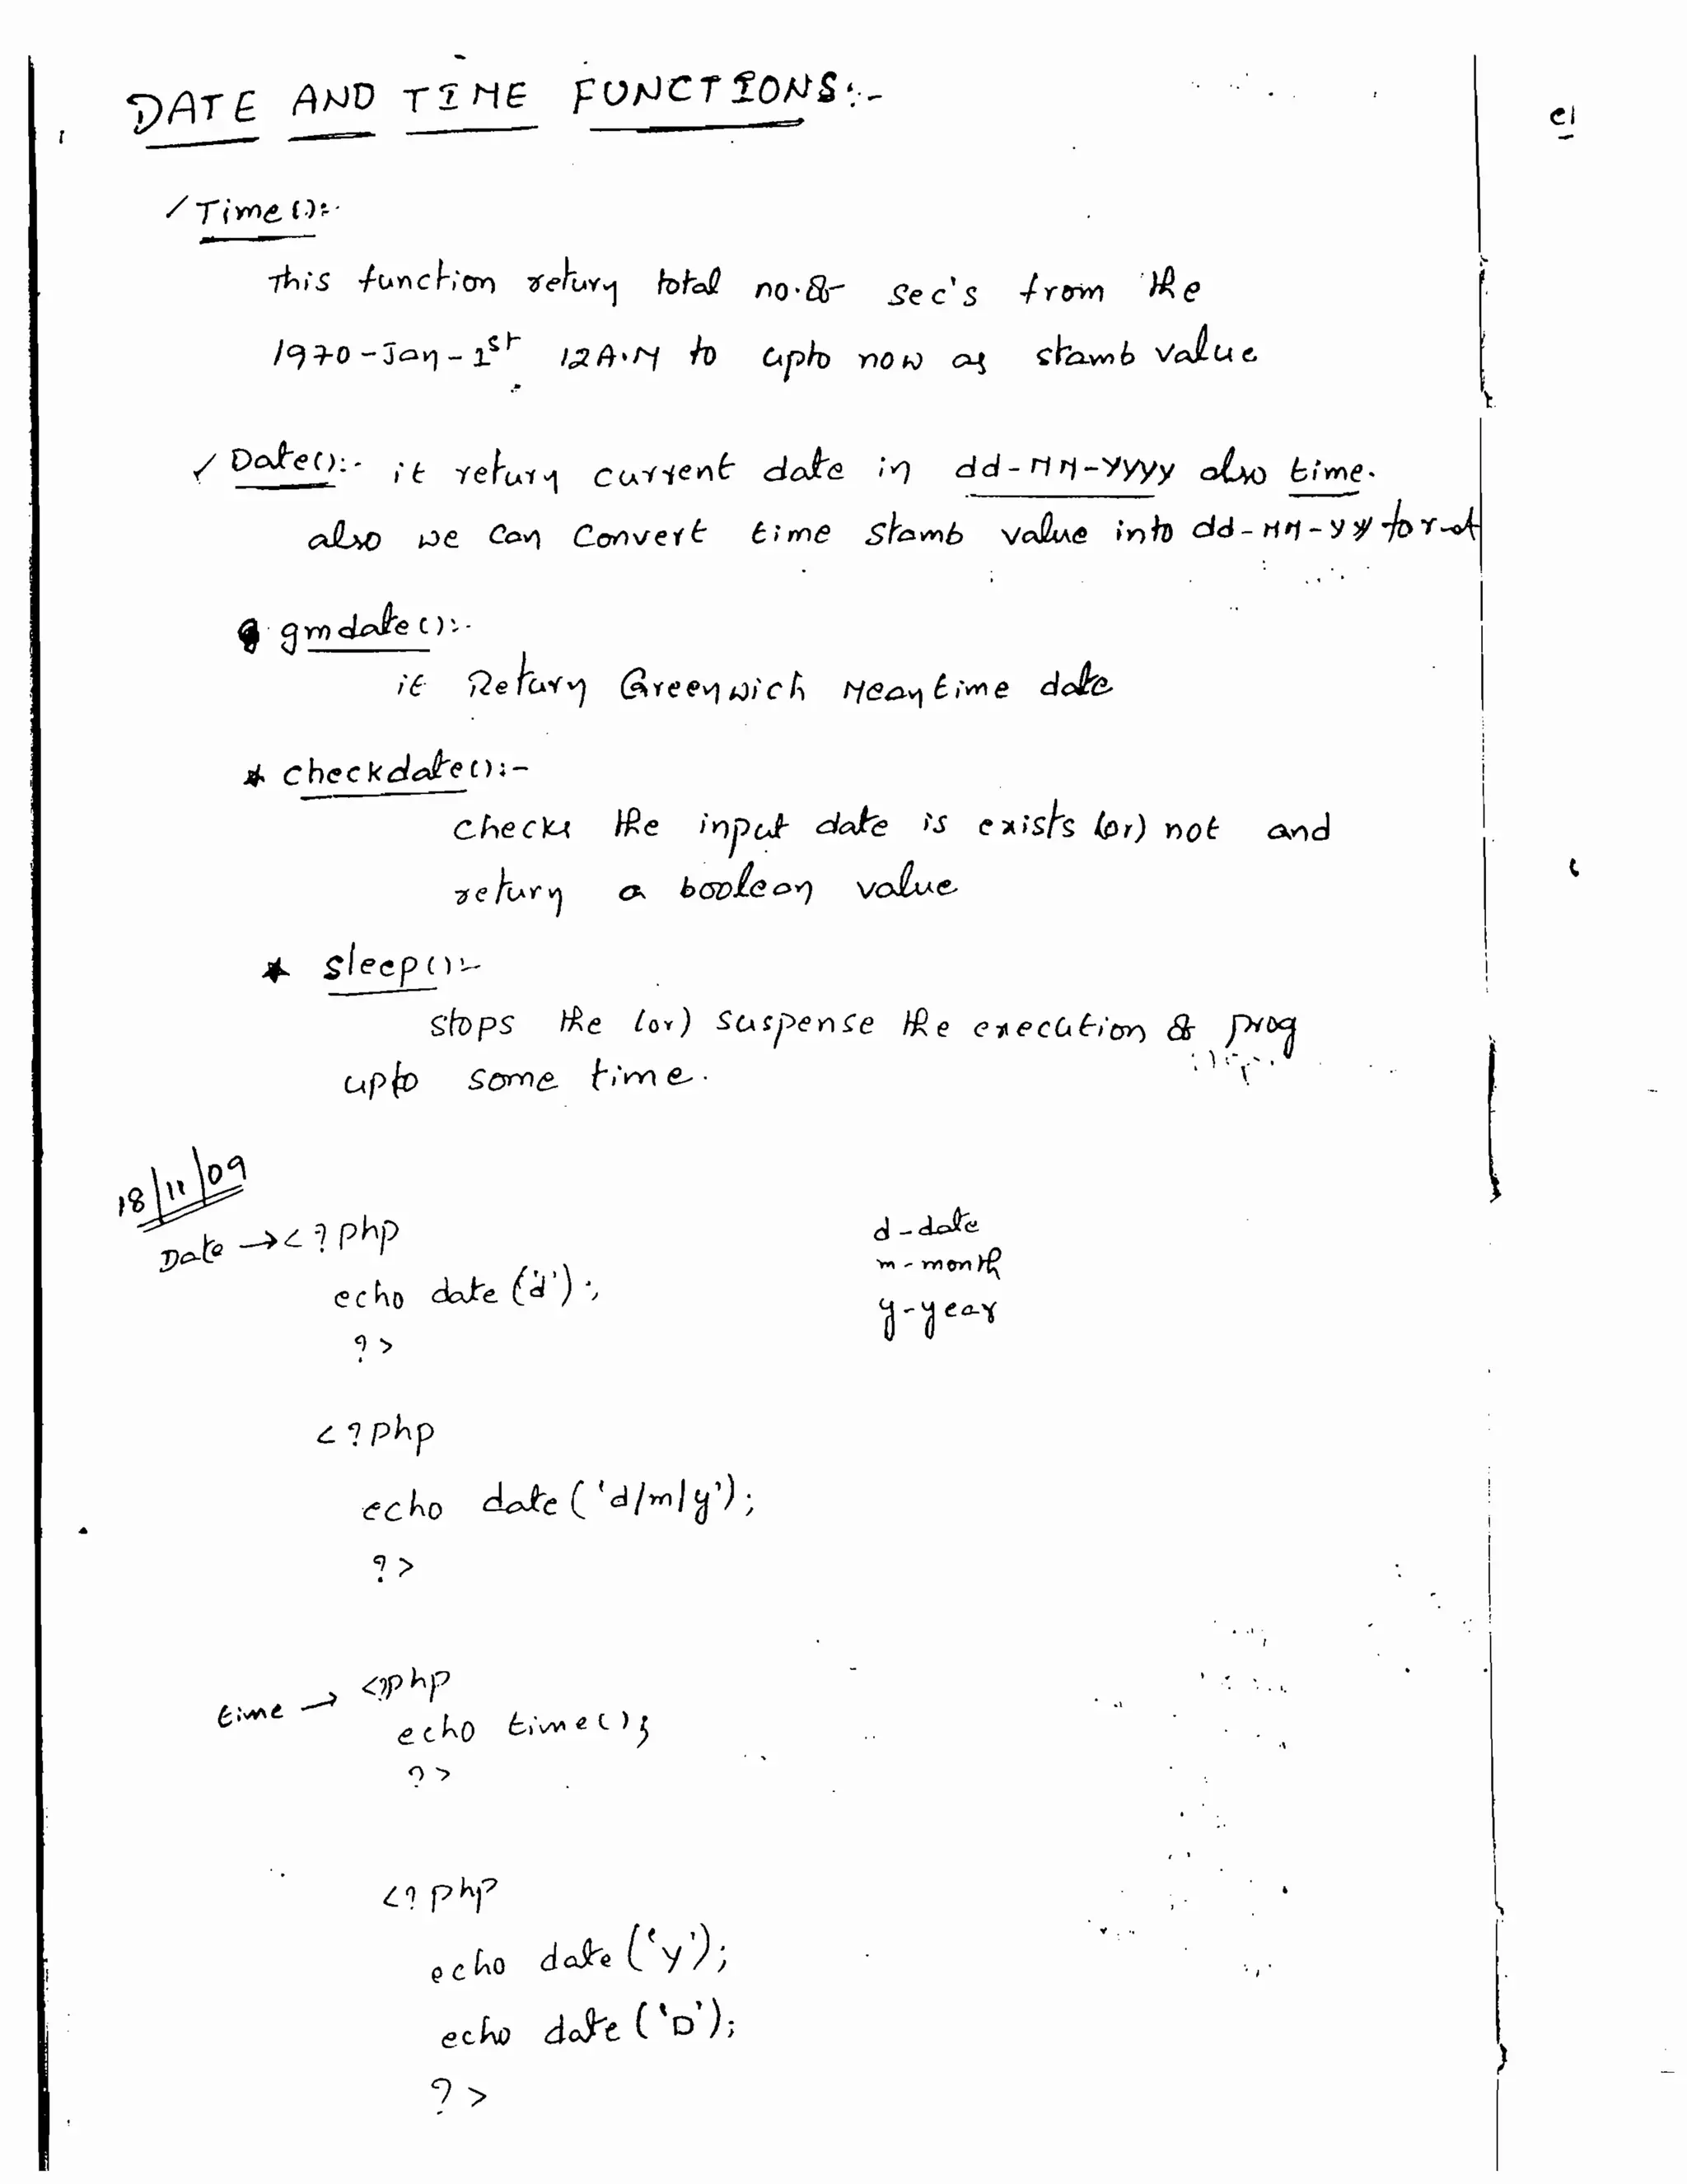 DATE AND TIME FUNCTIONS:-
Time():-
This function return total no.of sec's from the
1970-Jan-1st 12A.M to upto now as stamb value
Date():- it return current date in dd-MM-yyyy also time.
also we can Convert time stamb value into dd-MM-yy format
gmdate():-
it Return Greenwich Meantime date
* checkdate():-
checks the input date is exists (or) not and
return a boolean value
* sleep():-
stops the (or) suspense the execution of prog
upto some time.
18/11/09
Date → <?php
echo date('d');
?>
d-date
m-month
y-year
<?php
echo date('d/m/y');
?>
time → <?php
echo time();
?>
<?php
echo date('y');
echo date('D');
?>